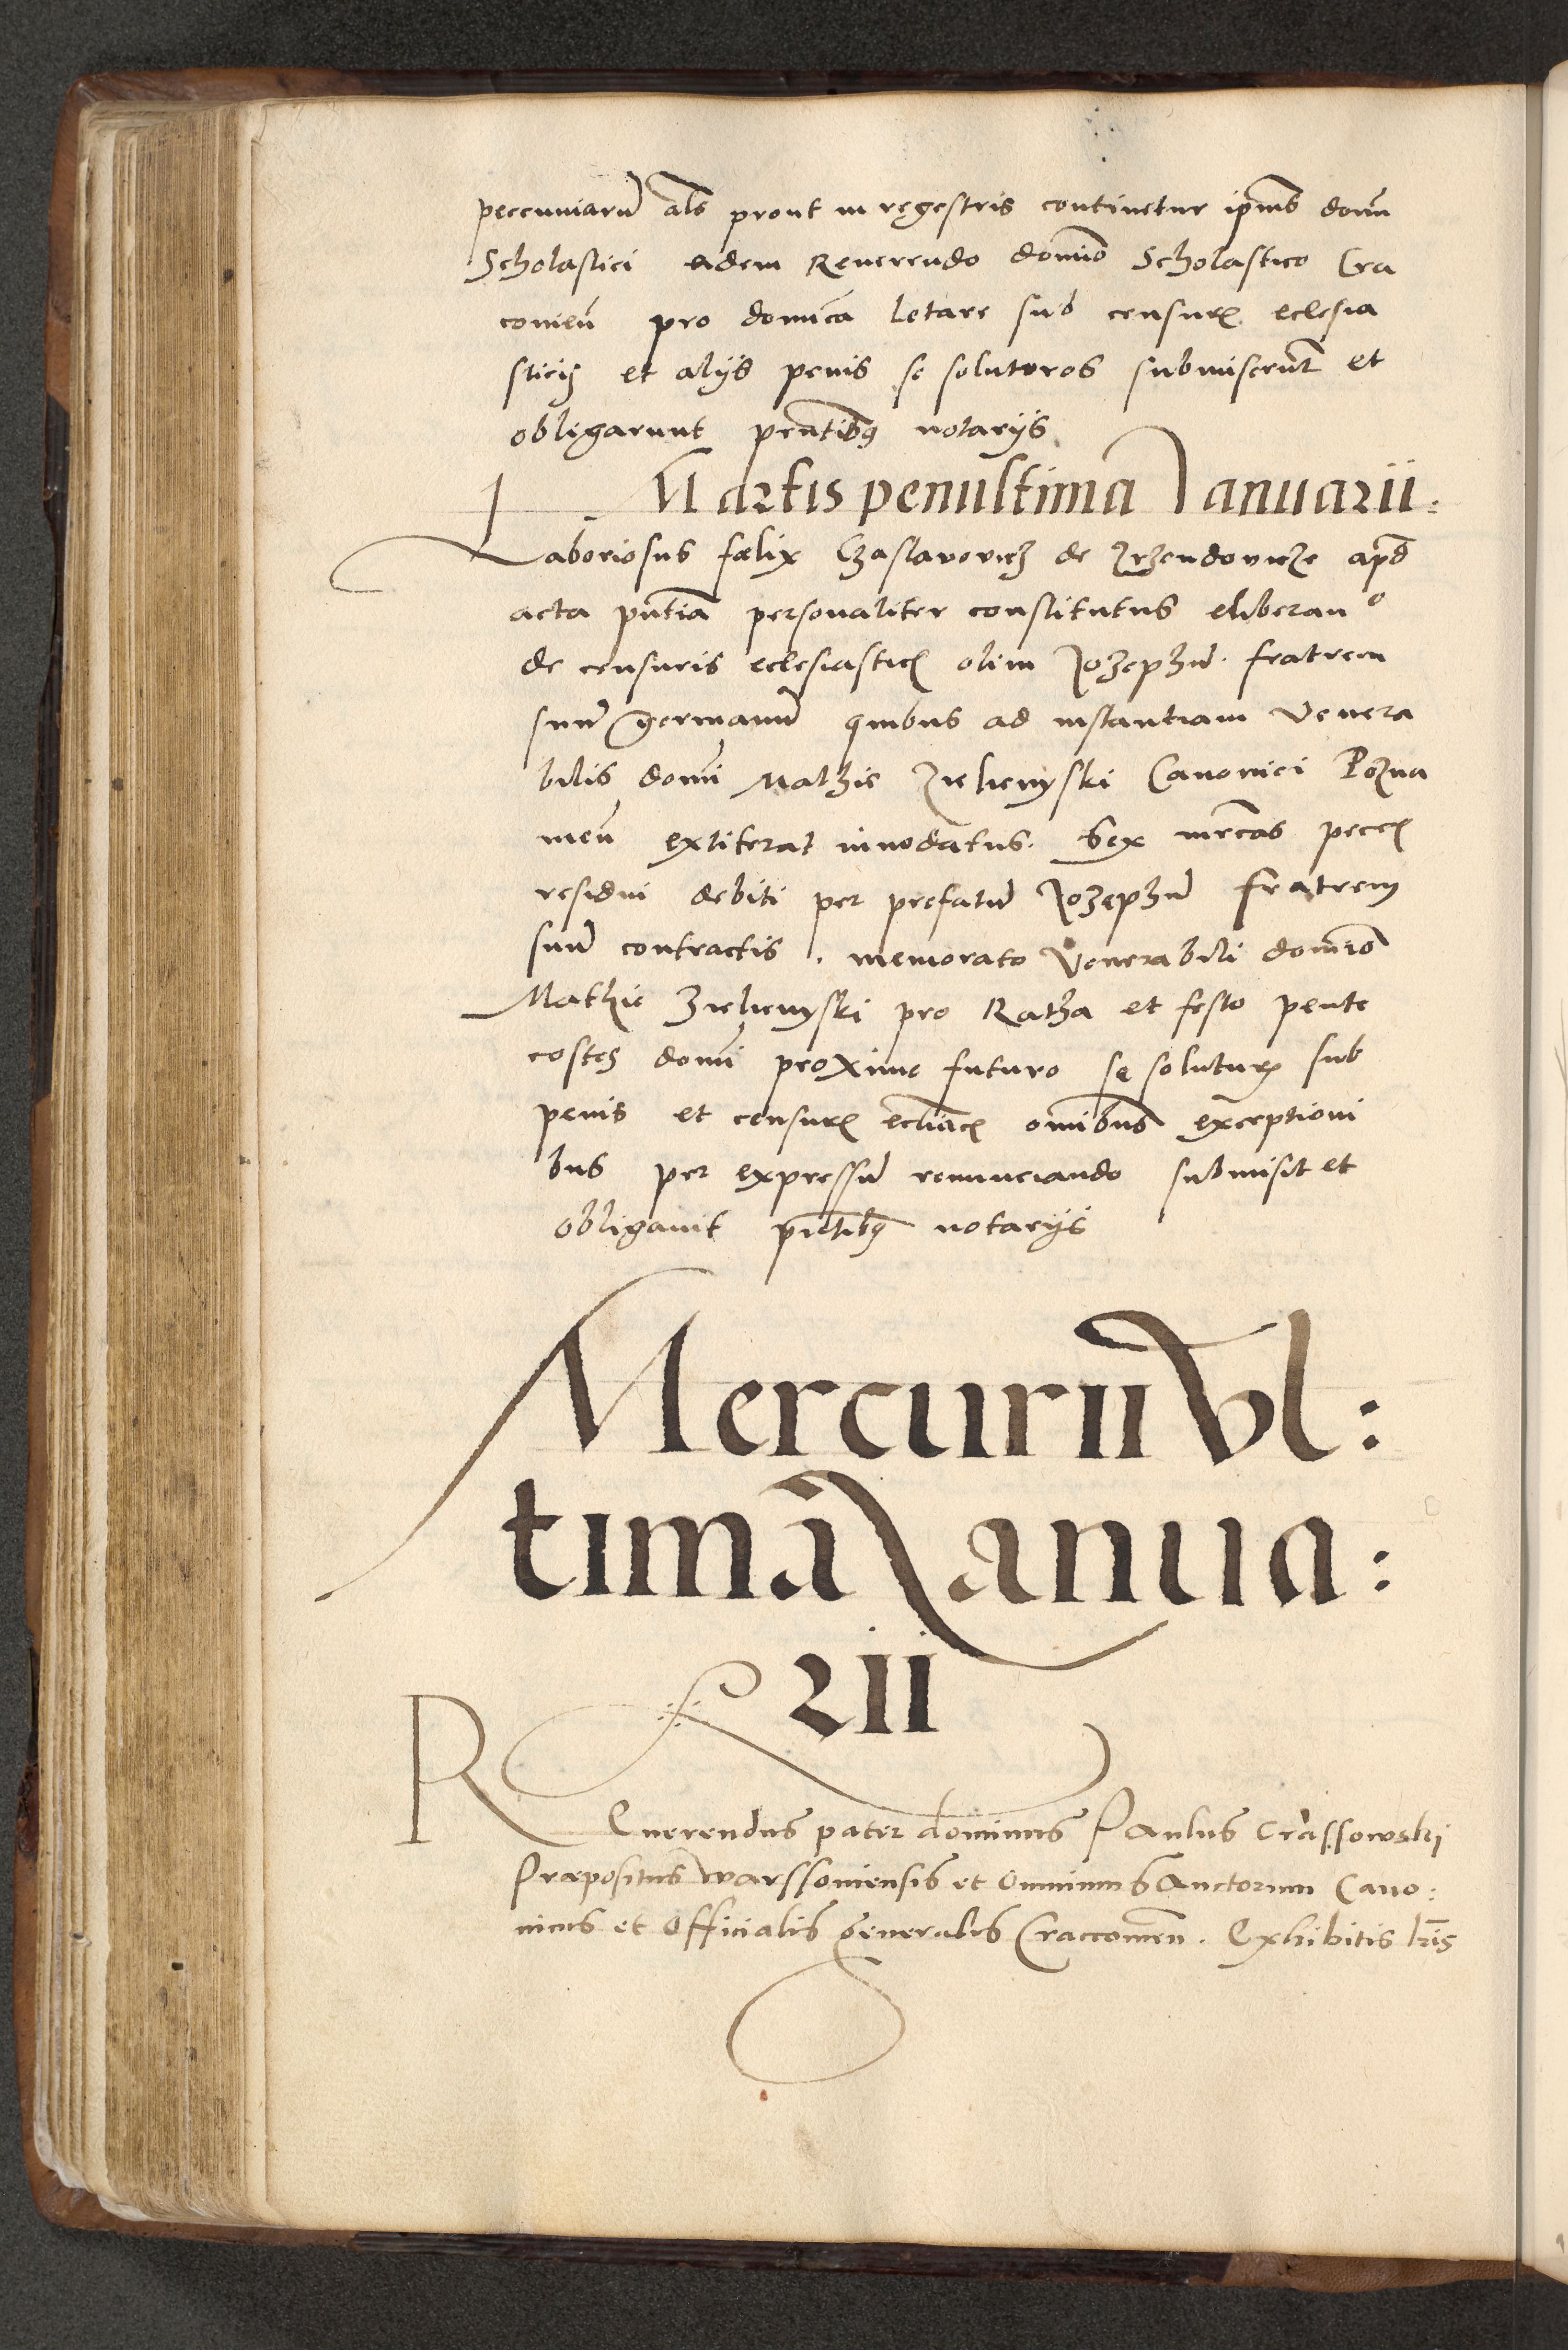 peccuniarũ als prout in regestris continetur ipius domi
Scholastici eidem Reverendo domio Scholastico Cra
covien̄ pro domica letare sub censuris ecclesia
sticis et alijs penis se soluturos submiserūt et
obligarunt pentibq notarijs
Martis penultima Januarii:
Laboriosus fœlix Czaslavovicz de Zrzendovicze apd
acta pntia personaliter constitutus eliberando
de censuris eclesiasticis olim Jozephum fratrem
suum germanum quibus ad instantiam Venera
bilis domi Mathie Zielienyski Canonici Pozna
nien̄ extiterat innodatus. Sex mrcas peccis
residui debiti per prefatum Jozephum fratrem
suum contractis. memorato Venerabili domio
Mathie Zielienyski pro Ratha et festo pente
costes domi proxime futuro se soluturum sub
penis et censuris ecliacis omibus exceptioni
bus per expressum renunciando submisit et
obligavit pntibq notarijs
Mercurii vl:
tima Janua:
rii
REverendus pater dominus Paulus Crassowski
Præpositus Warssoviensis et Omnium Sanctorum Cano:
nicus et Officialis Generalis Craccovien̄. Exhibitis lris